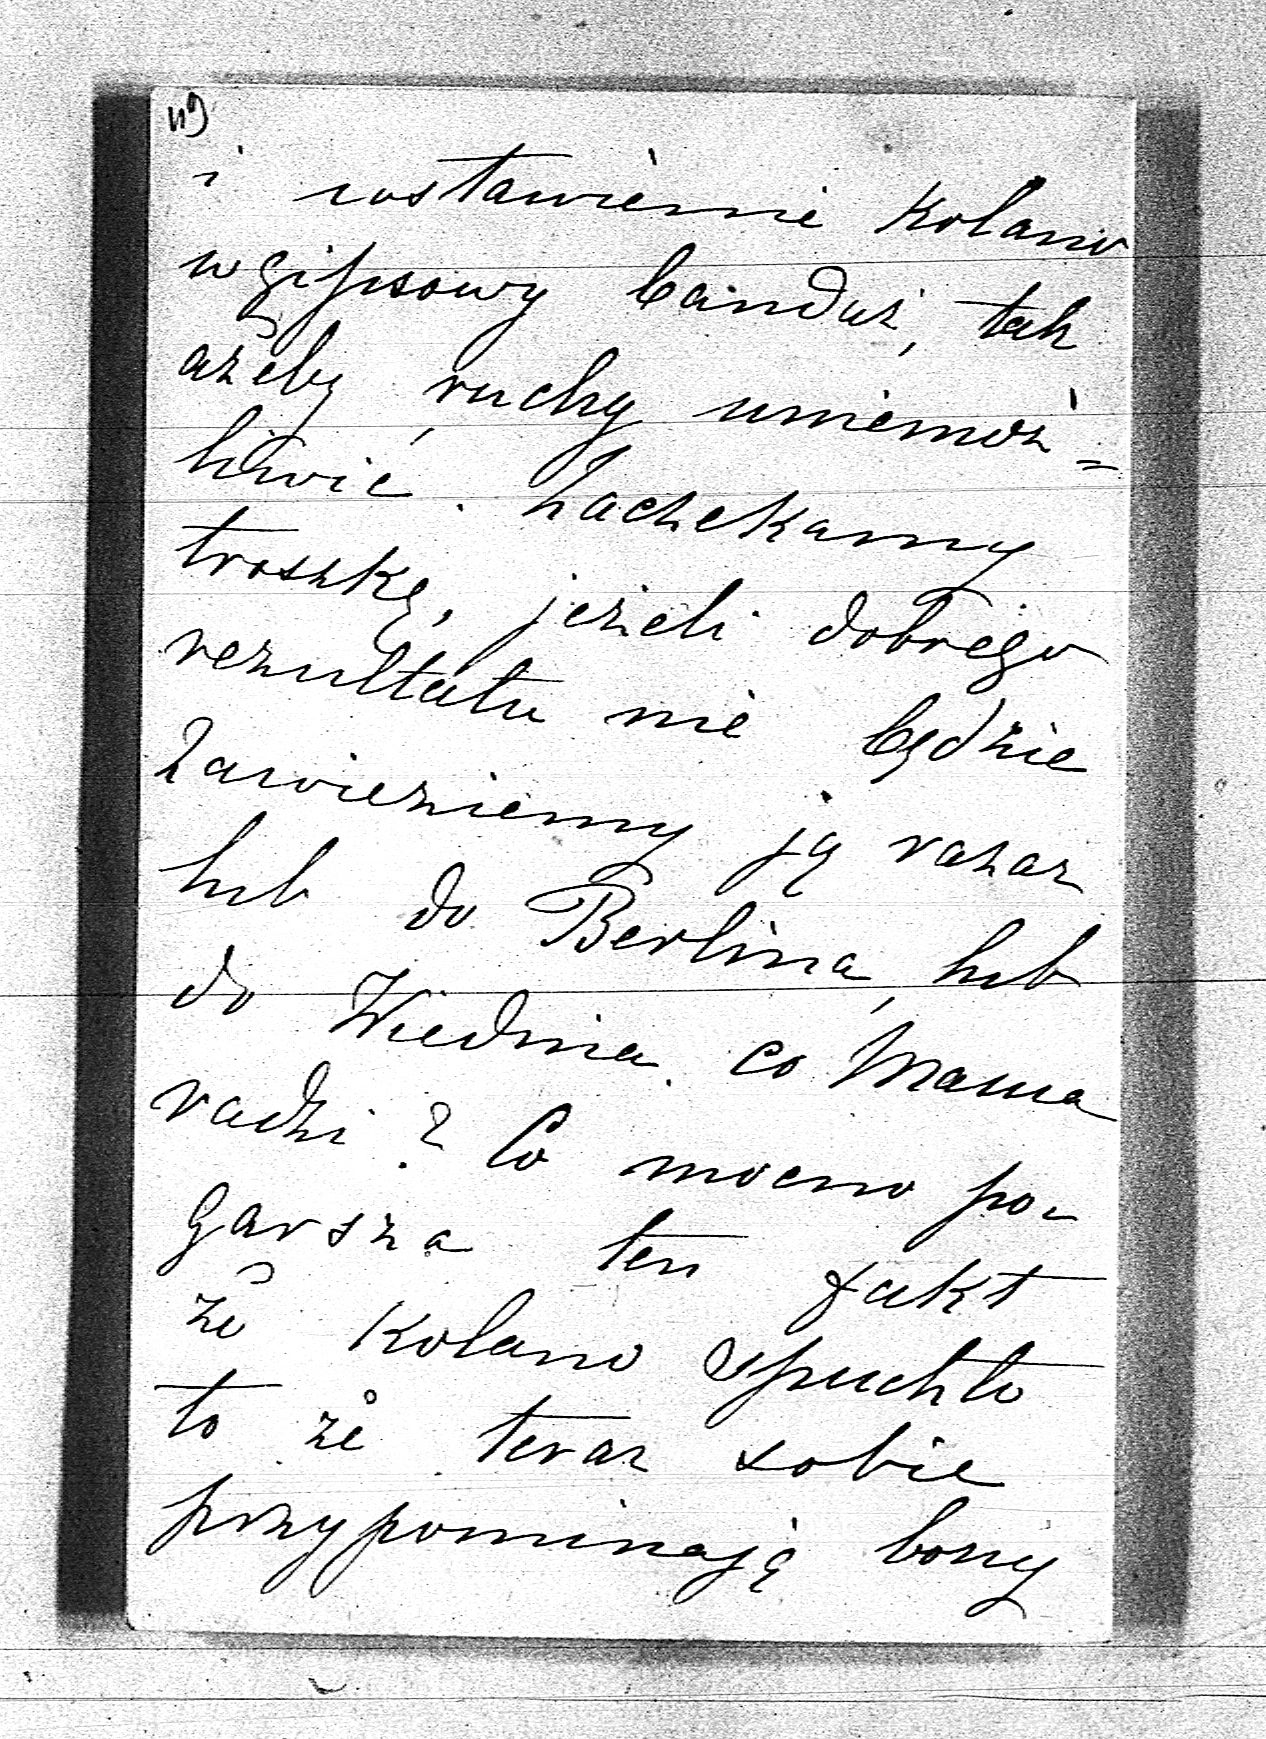 49
i wstawienie kolano
w gipsowy bandaż, tak
ażeby ruchy uniemoż-
liwić. Zaczekamy
troszkę, jeżeli dobrego
rezultatu nie będzie
zawieziemy ją zaraz
lub do Berlina, lub
do Wiednia. co Mama
radzi? Co mocno po-
garsza ten fakt
że kolano spuchło
to że teraz sobie
przypominają bony